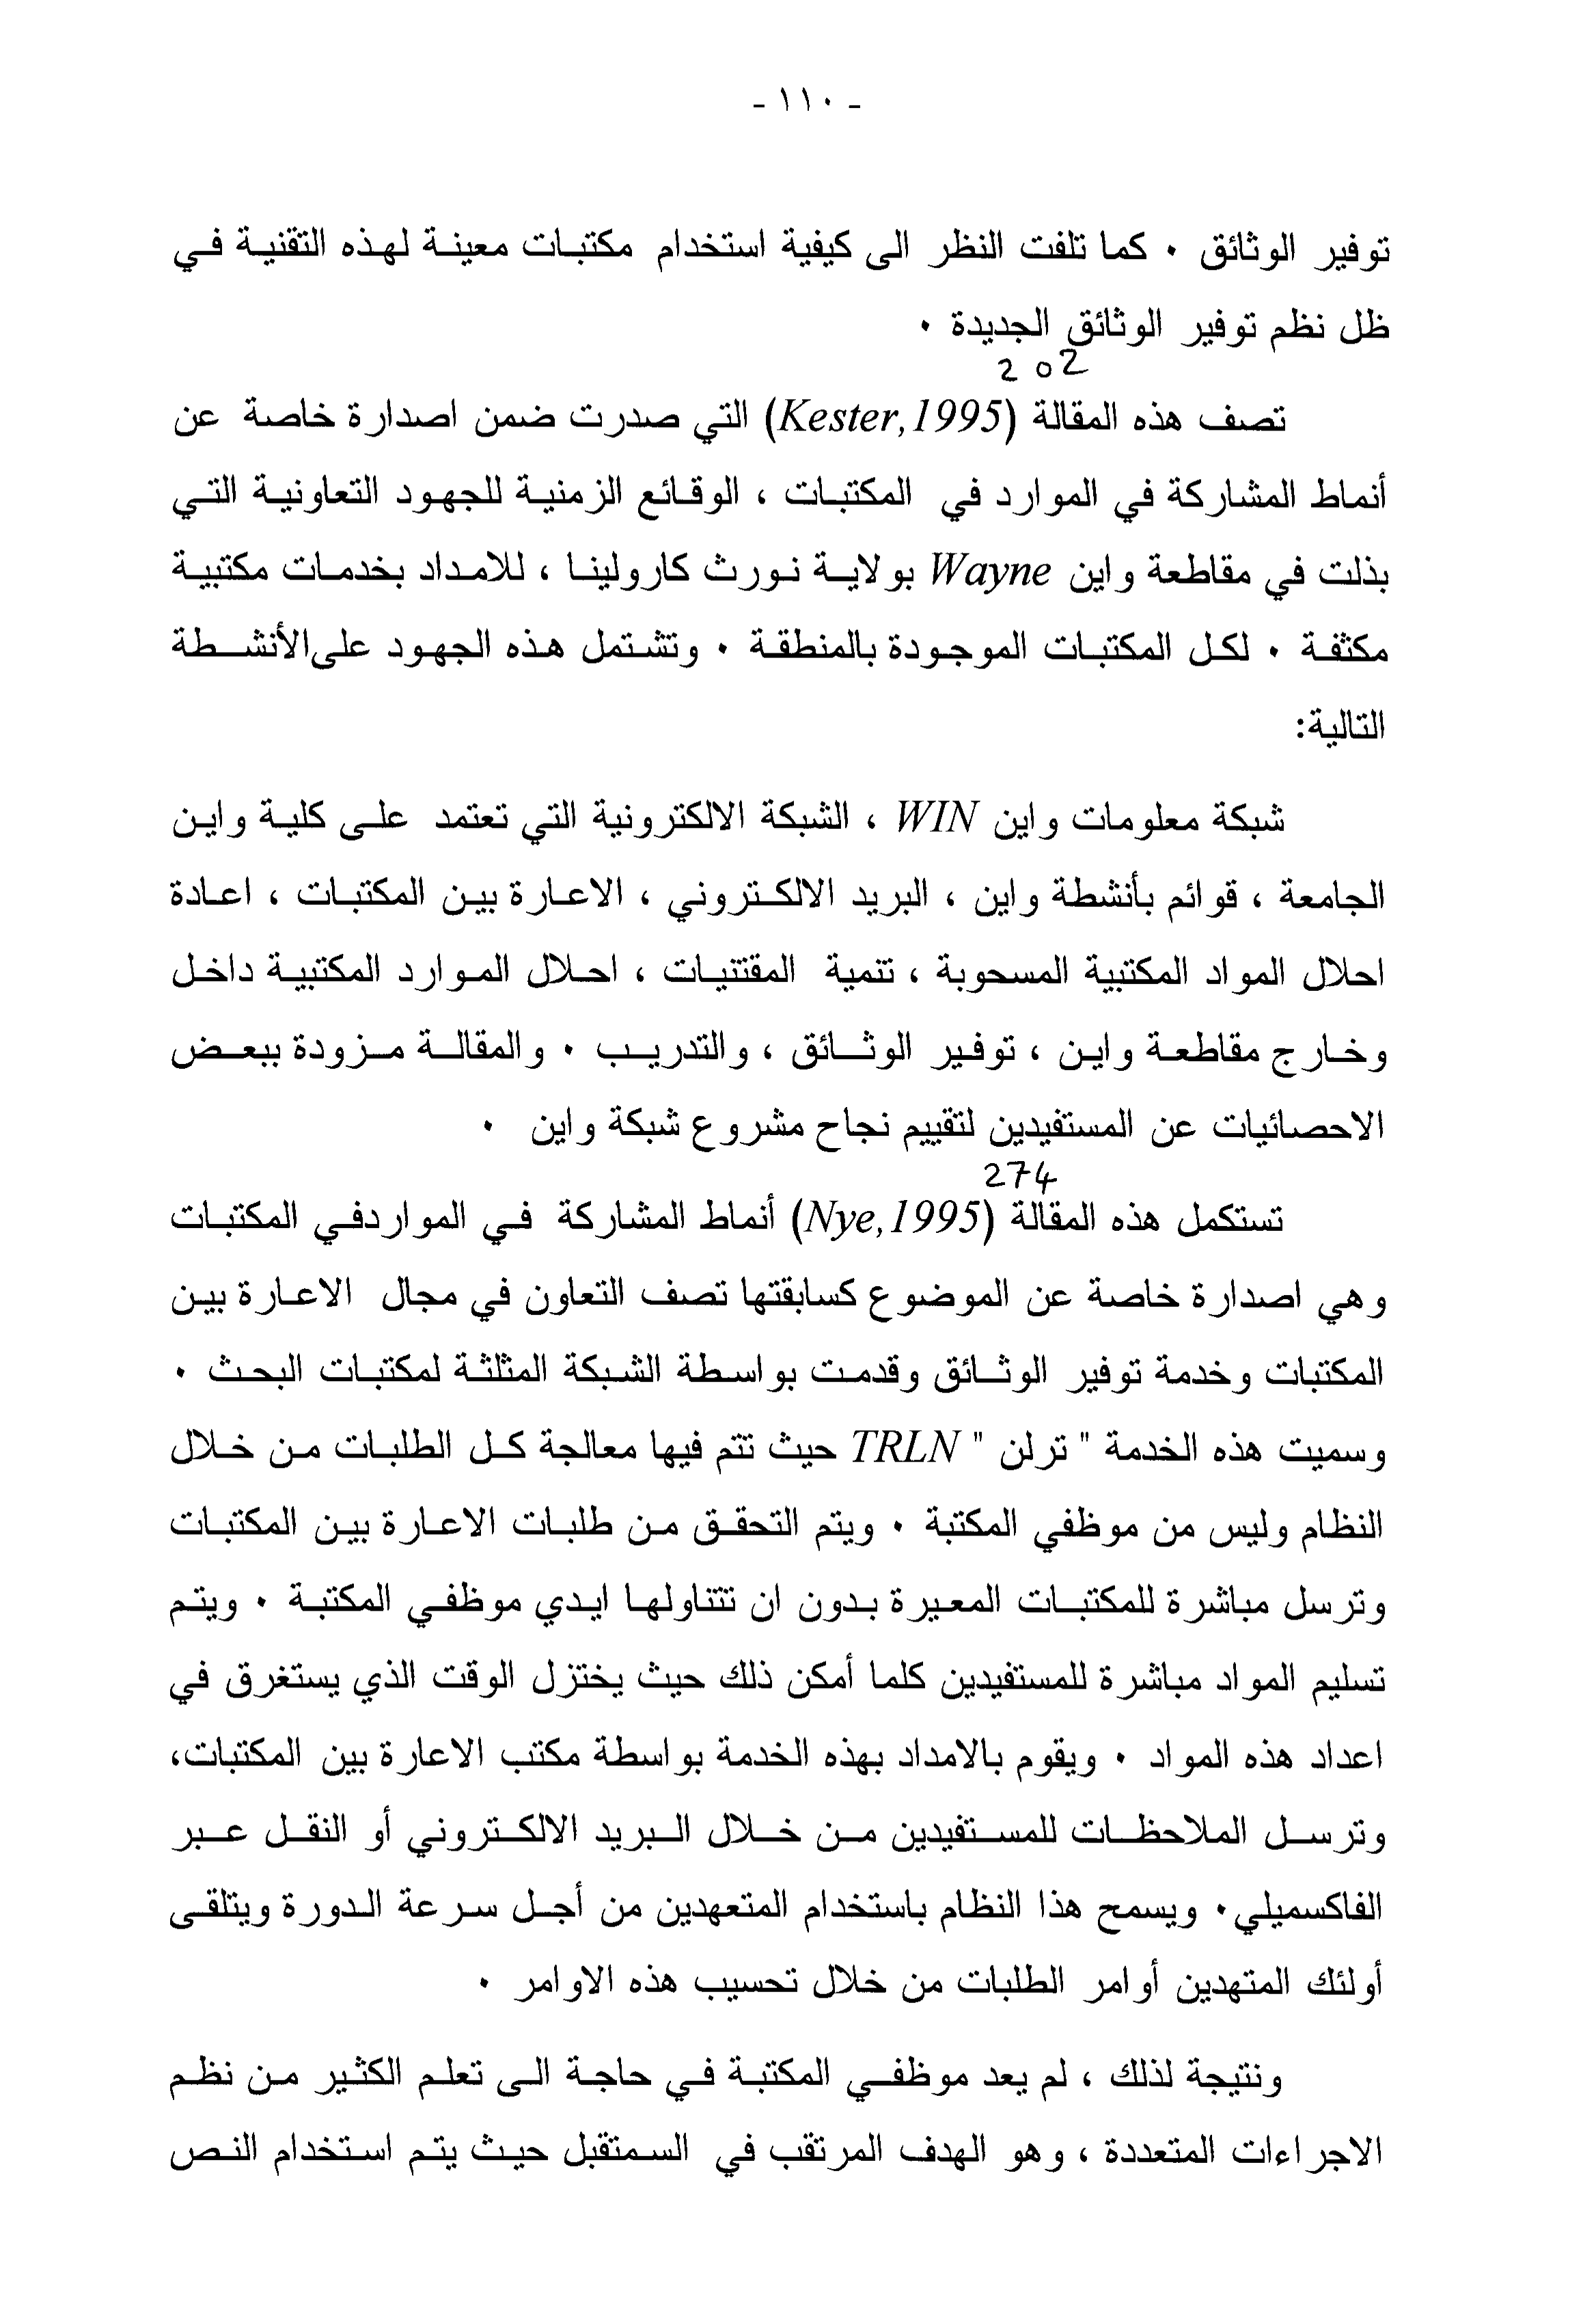 - ١١٠ -
توفير الوثائق ٠ كما تلفت النظر الى كيفية استخدام مكتبات معينة لهذه التقنية في
ظل نظم توفير الوثائق الجديدة ٠
202
تصف هذه المقالة (Kester,1995) التي صدرت ضمن اصدارة خاصة عن
أنماط المشاركة في الموارد في المكتبات ، الوقائع الزمنية للجهود التعاونية التي
بذلت في مقاطعة واين Wayne بولاية نورث كارولينا ، للامداد بخدمات مكتبية
مكثفة ٠ لكل المكتبات الموجودة بالمنطقة ٠ وتشتمل هذه الجهود على الأنشطة
التالية:
شبكة معلومات واين WIN ، الشبكة الالكترونية التي تعتمد على كلية واين
الجامعة ، قوائم بأنشطة واين ، البريد الالكتروني ، الاعارة بين المكتبات ، اعادة
احلال المواد المكتبية المسحوبة ، تنمية المقتنيات ، احلال الموارد المكتبية داخل
وخارج مقاطعة واين ، توفير الوثائق ، والتدريب ٠ والمقالة مزودة ببعض
الاحصائيات عن المستفيدين لتقييم نجاح مشروع شبكة واين ٠
274
تستكمل هذه المقالة (Nye,1995) أنماط المشاركة في المواردفي المكتبات
وهي اصدارة خاصة عن الموضوع كسابقتها تصف التعاون في مجال الاعارة بين
المكتبات وخدمة توفير الوثائق وقدمت بواسطة الشبكة المثلثة لمكتبات البحث ٠
وسميت هذه الخدمة " ترلن " TRLN حيث تتم فيها معالجة كل الطلبات من خلال
النظام وليس من موظفي المكتبة ٠ ويتم التحقق من طلبات الاعارة بين المكتبات
وترسل مباشرة للمكتبات المعيرة بدون ان تتناولها ايدي موظفي المكتبة ٠ ويتم
تسليم المواد مباشرة للمستفيدين كلما أمكن ذلك حيث يختزل الوقت الذي يستغرق في
اعداد هذه المواد ٠ ويقوم بالامداد بهذه الخدمة بواسطة مكتب الاعارة بين المكتبات،
وترسل الملاحظات للمستفيدين من خلال البريد الالكتروني أو النقل عبر
الفاكسميلي٠ ويسمح هذا النظام باستخدام المتعهدين من أجل سرعة الدورة ويتلقى
أولئك المتهدين أوامر الطلبات من خلال تحسيب هذه الاوامر ٠
ونتيجة لذلك ، لم يعد موظفي المكتبة في حاجة الى تعلم الكثير من نظم
الاجراءات المتعددة ، وهو الهدف المرتقب في السمتقبل حيث يتم استخدام النص